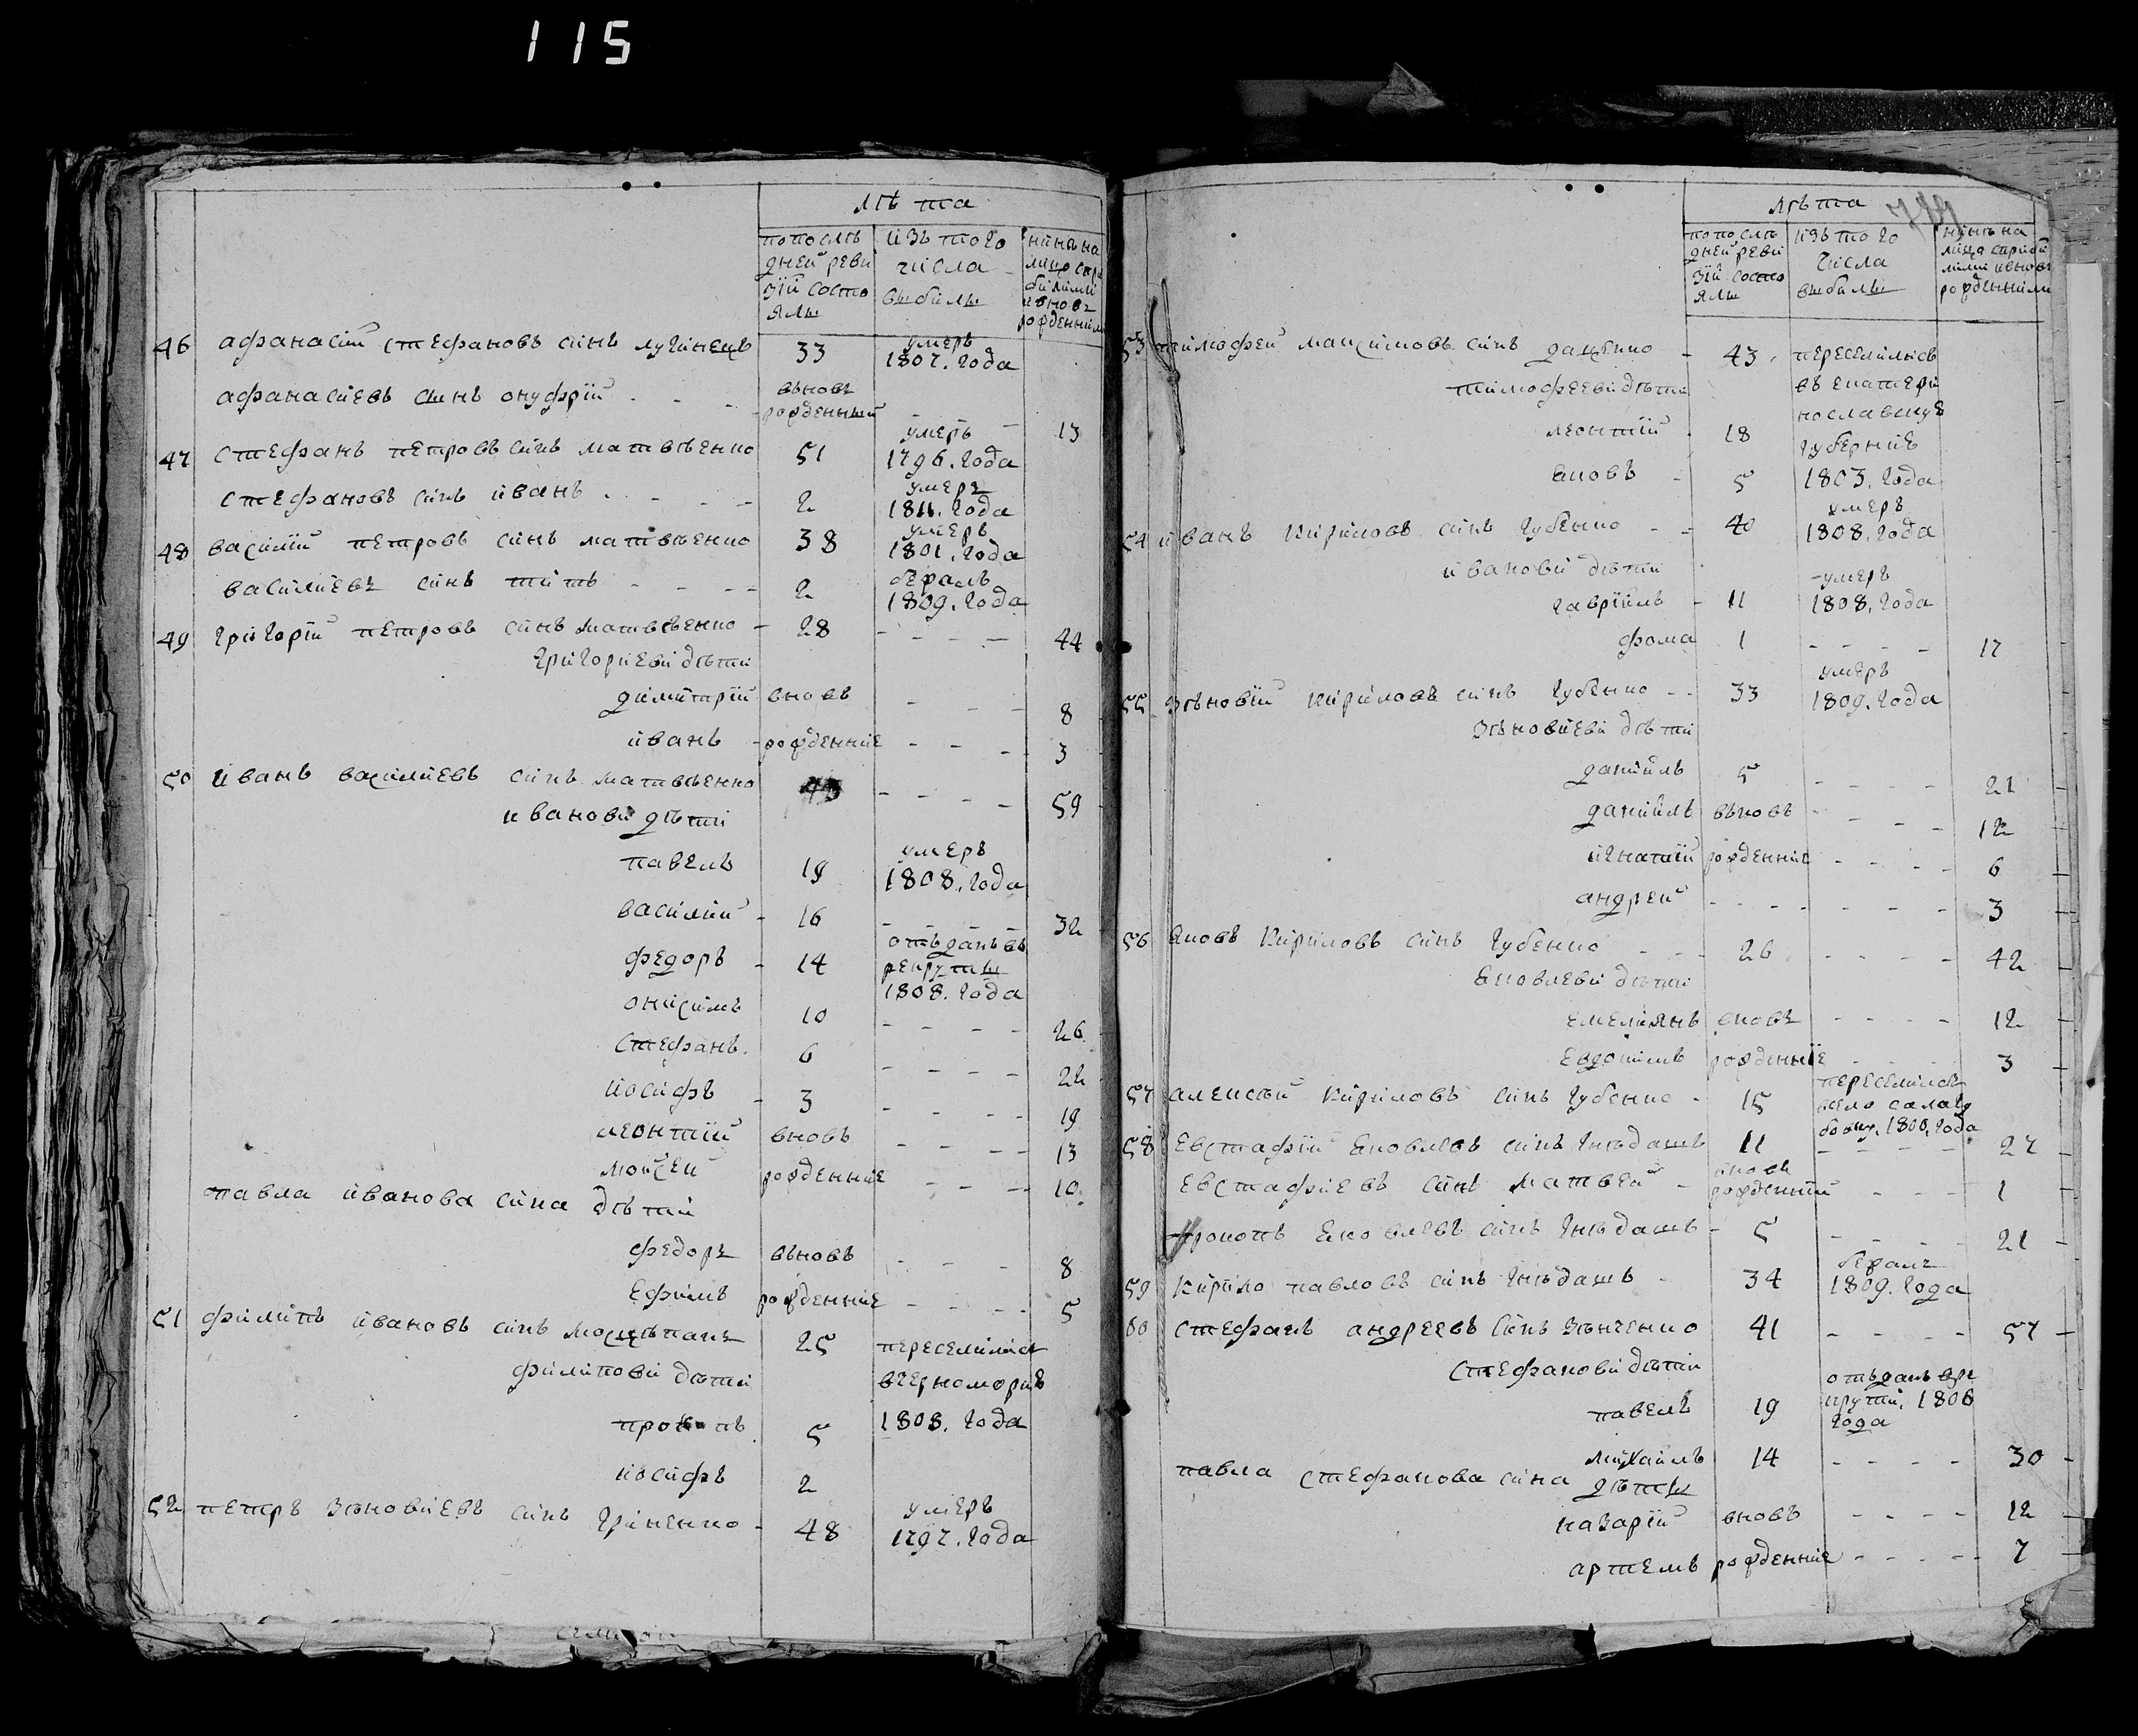 115
лѣта
по после
дней реви
зіи состо
яли
изъ того
числа
выбыли
нинѣ на
лицо съ при
былыми
и вновь
рожденними
46 афанасій стефановъ синъ лучинецъ 33 умеръ 1807. года
афанасіевъ сынъ онуфрій вьновь рожденный 13
47 стефанъ петровъ синъ матвѣенко 51 умеръ 1796. года
стефановъ синъ иванъ 2 умеръ 1811. года
48 василій петровъ синъ матвѣенко 38 умеръ 1801. года
василиевъ синъ титъ 2 бежалъ 1809. года
49 григорій петровъ синъ матвѣенко 28 44
григориеви дѣти
димитрій вновь 8
иванъ рожденние 3
50 иванъ василиевъ синъ матвѣенко 59
иванови дѣти
павелъ 19 умеръ 1808. года
василий 16 32
федоръ 14 отъданъ въ рекруты 1808. года
онисимъ 10 26
стефанъ 6 22
иосифъ 3 19
леонтій вновь 13
мойсей рожденние 10
павла иванова сина дѣти
федоръ вьновь 8
ефимъ рожденние 5
51 филипъ ивановъ синъ мощѣпанъ 25 переселились
филипови дѣти вчерноморие
прокопъ 5 1808. года
иосифъ 2
52 петръ зѣновиевъ синъ гриненко 48 умеръ 1797. года
лѣта
по после
дней реви
зіи состо
яли
изъ того
числа
выбыли
нинѣ на
лицо съ прибы
лими и вновь
рожденними
53 тимофей максимовъ синъ даценко 43 переселились
тимофееви дѣти въ екатери
нославскую
леонтий 18 губернию
яковъ 5 1803. года
54 иванъ кириловъ синъ губенко 40 умеръ 1808. года
иванови дѣти
гавріилъ 11 умеръ 1808. года
фома 1 17
55 зѣновій кириловъ синъ губенко 33 умеръ 1809. года
зѣновиеви дѣти
даниилъ 5 21
даниилъ вьновь 12
игнатий рожденние 6
андрей 3
56 яковъ кириловъ синъ губенко 26 42
яковлеви дѣти
емелиянъ вновь 12
евдокимъ рожденніе 3
57 алексѣй кириловъ синъ губенко 15 переселился
всело салого
бовку. 1800. года
58 евстафій яковлевъ синъ гнѣдашъ 11 27
евстафиевъ синъ матвей вновь рожденний 1
прокопъ яковлевъ синъ гнѣдашъ 5 21
59 кирило павловъ синъ гнѣдашъ 34 бежалъ 1809. года
60 стефанъ андреевъ синъ зѣнченко 41 57
стефанови дѣти
павелъ 19 отъданъ вре
крути. 1806
года
михаилъ 14 30
павла стефанова сина дѣты
назарій вновь 12
артемъ рожденние 7